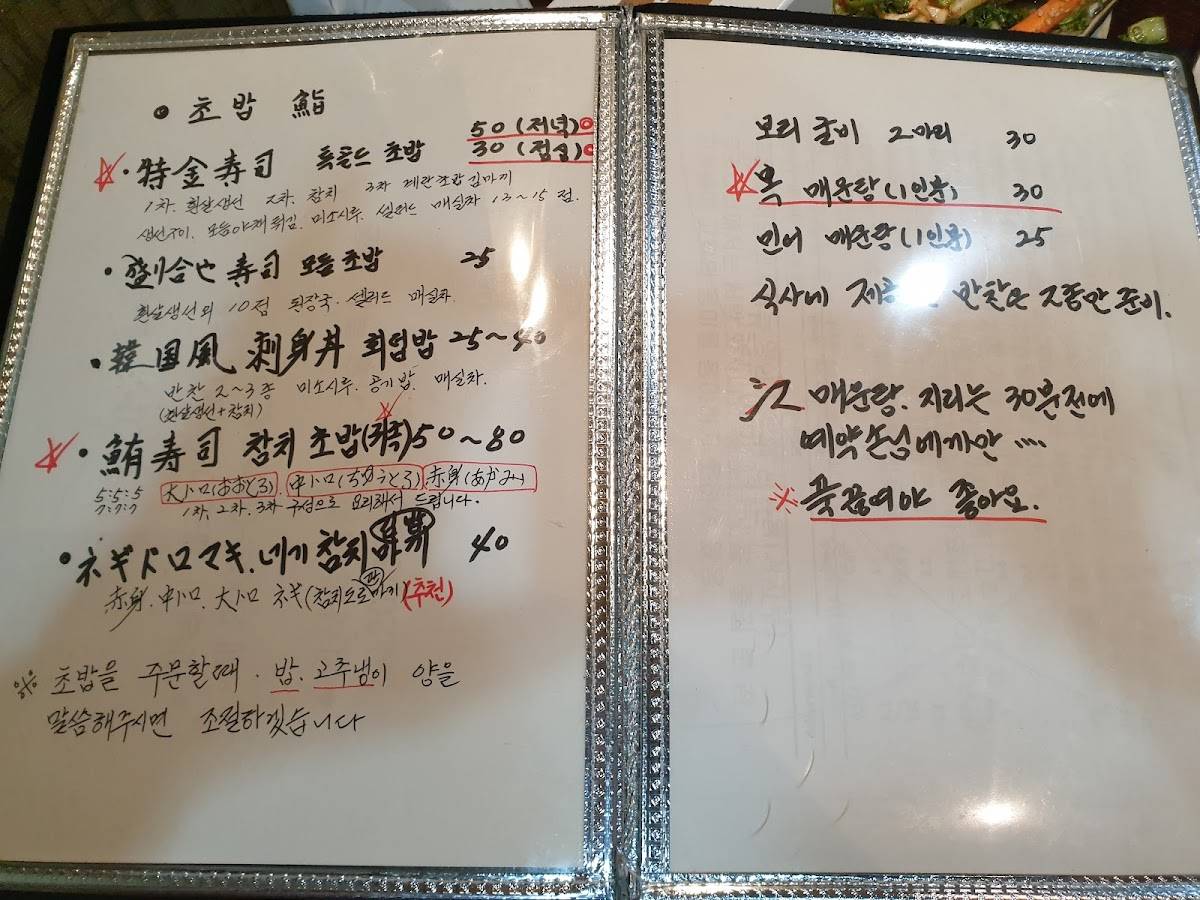 초밥 鮨
50 (저녁)
特金寿司 특골드 초밥 30 (점심)
1차. 흰살생선 2차. 참치 3차 계란초밥 김마끼
생선구이. 모듬야채튀김. 미소시루. 샐러드 매실차 13~15 점.
盛り合せ 寿司 모듬초밥 25
흰살생선외 10점 된장국. 셀러드 매실차.
韓国風 刺身丼 회덮밥 25~40
반찬 2~3종 미소시루. 공기밥. 매실차.
(흰살생선+참치)
鮪寿司 참치 초밥 50~80
5:5:5 大トロ(おおとろ) 中トロ(ちゅうとろ) 赤身(あかみ)
7:7:7 1차. 2차. 3차 구성으로 요리해서 드립니다.
ネギトロマキ. 네기 참치 40
赤身. 中トロ. 大トロ ネギ (추천)
※ 초밥을 주문할때. 밥. 고추냉이 양을
말씀해주시면 조절하겠습니다
보리굴비 2마리 30
복 매운탕(1인분) 30
민어 매운탕(1인분) 25
식사에 반찬은 준비.
매운탕. 지리는 30분전에
예약손님에게만 ....
※ 푹끓여야 좋아요.